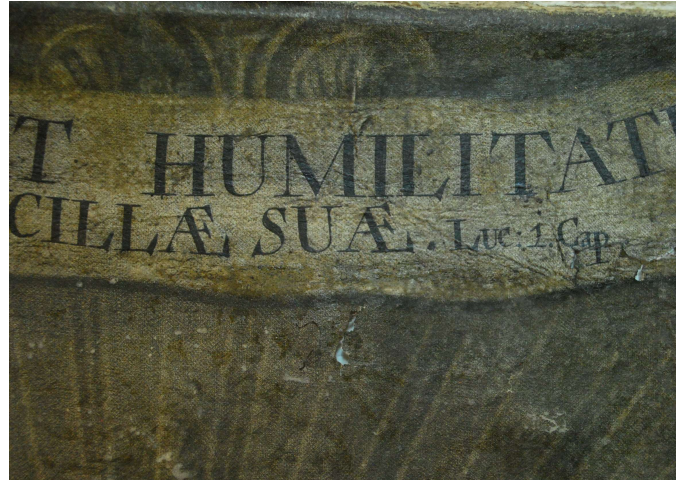 T HUMILITAT
CILLÆ SUÆ. Luc: i. Cap.